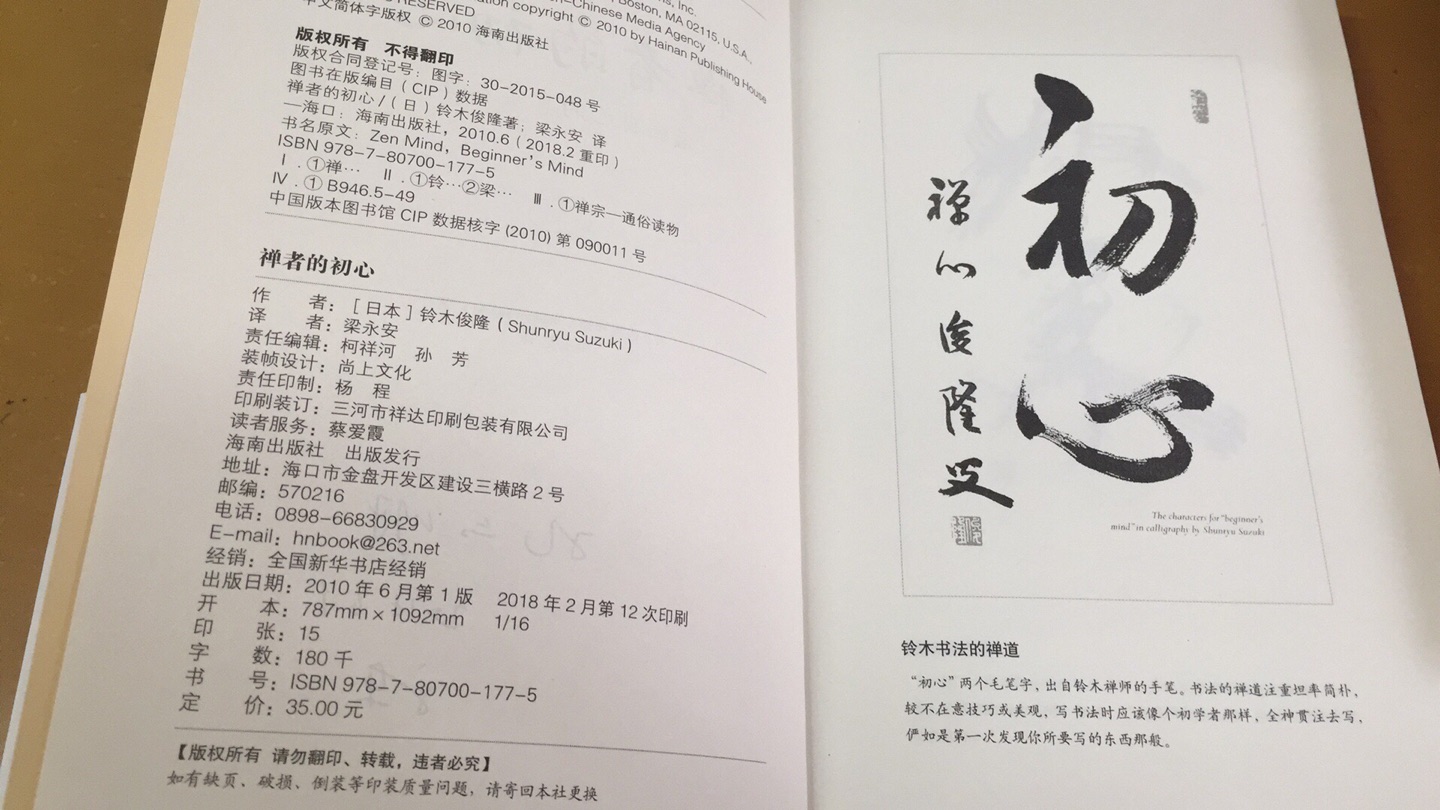 Boston, MA 02115, U.S.A.,
-Chinese Media Agency
copyright © 2010 by Hainan Publishing House
RESERVED
中文简体字版权 © 2010 海南出版社
版权所有 不得翻印
版权合同登记号：图字：30-2015-048 号
图书在版编目（CIP）数据
禅者的初心 /（日）铃木俊隆著；梁永安 译
—海口：海南出版社，2010.6（2018.2 重印）
书名原文：Zen Mind, Beginner's Mind
ISBN 978-7-80700-177-5
Ⅰ．①禅… Ⅱ．①铃…②梁… Ⅲ．①禅宗—通俗读物
Ⅳ．① B946.5-49
中国版本图书馆 CIP 数据核字 (2010) 第 090011 号
禅者的初心
作 者：［日本］铃木俊隆（Shunryu Suzuki）
译 者：梁永安
责任编辑：柯祥河 孙 芳
装帧设计：尚上文化
责任印制：杨 程
印刷装订：三河市祥达印刷包装有限公司
读者服务：蔡爱霞
海南出版社 出版发行
地址：海口市金盘开发区建设三横路 2 号
邮编：570216
电话：0898-66830929
E-mail：hnbook@263.net
经销：全国新华书店经销
出版日期：2010 年 6 月第 1 版 2018 年 2 月第 12 次印刷
开 本：787mm × 1092mm 1/16
印 张：15
字 数：180 千
书 号：ISBN 978-7-80700-177-5
定 价：35.00 元
【版权所有 请勿翻印、转载，违者必究】
如有缺页、破损、倒装等印装质量问题，请寄回本社更换
初心
禅心俊隆
The characters for "beginner's
mind" in calligraphy by Shunryu Suzuki
铃木书法的禅道
“初心”两个毛笔字，出自铃木禅师的手笔。书法的禅道注重坦率简朴，
较不在意技巧或美观，写书法时应该像个初学者那样，全神贯注去写，
俨如是第一次发现你所要写的东西那般。